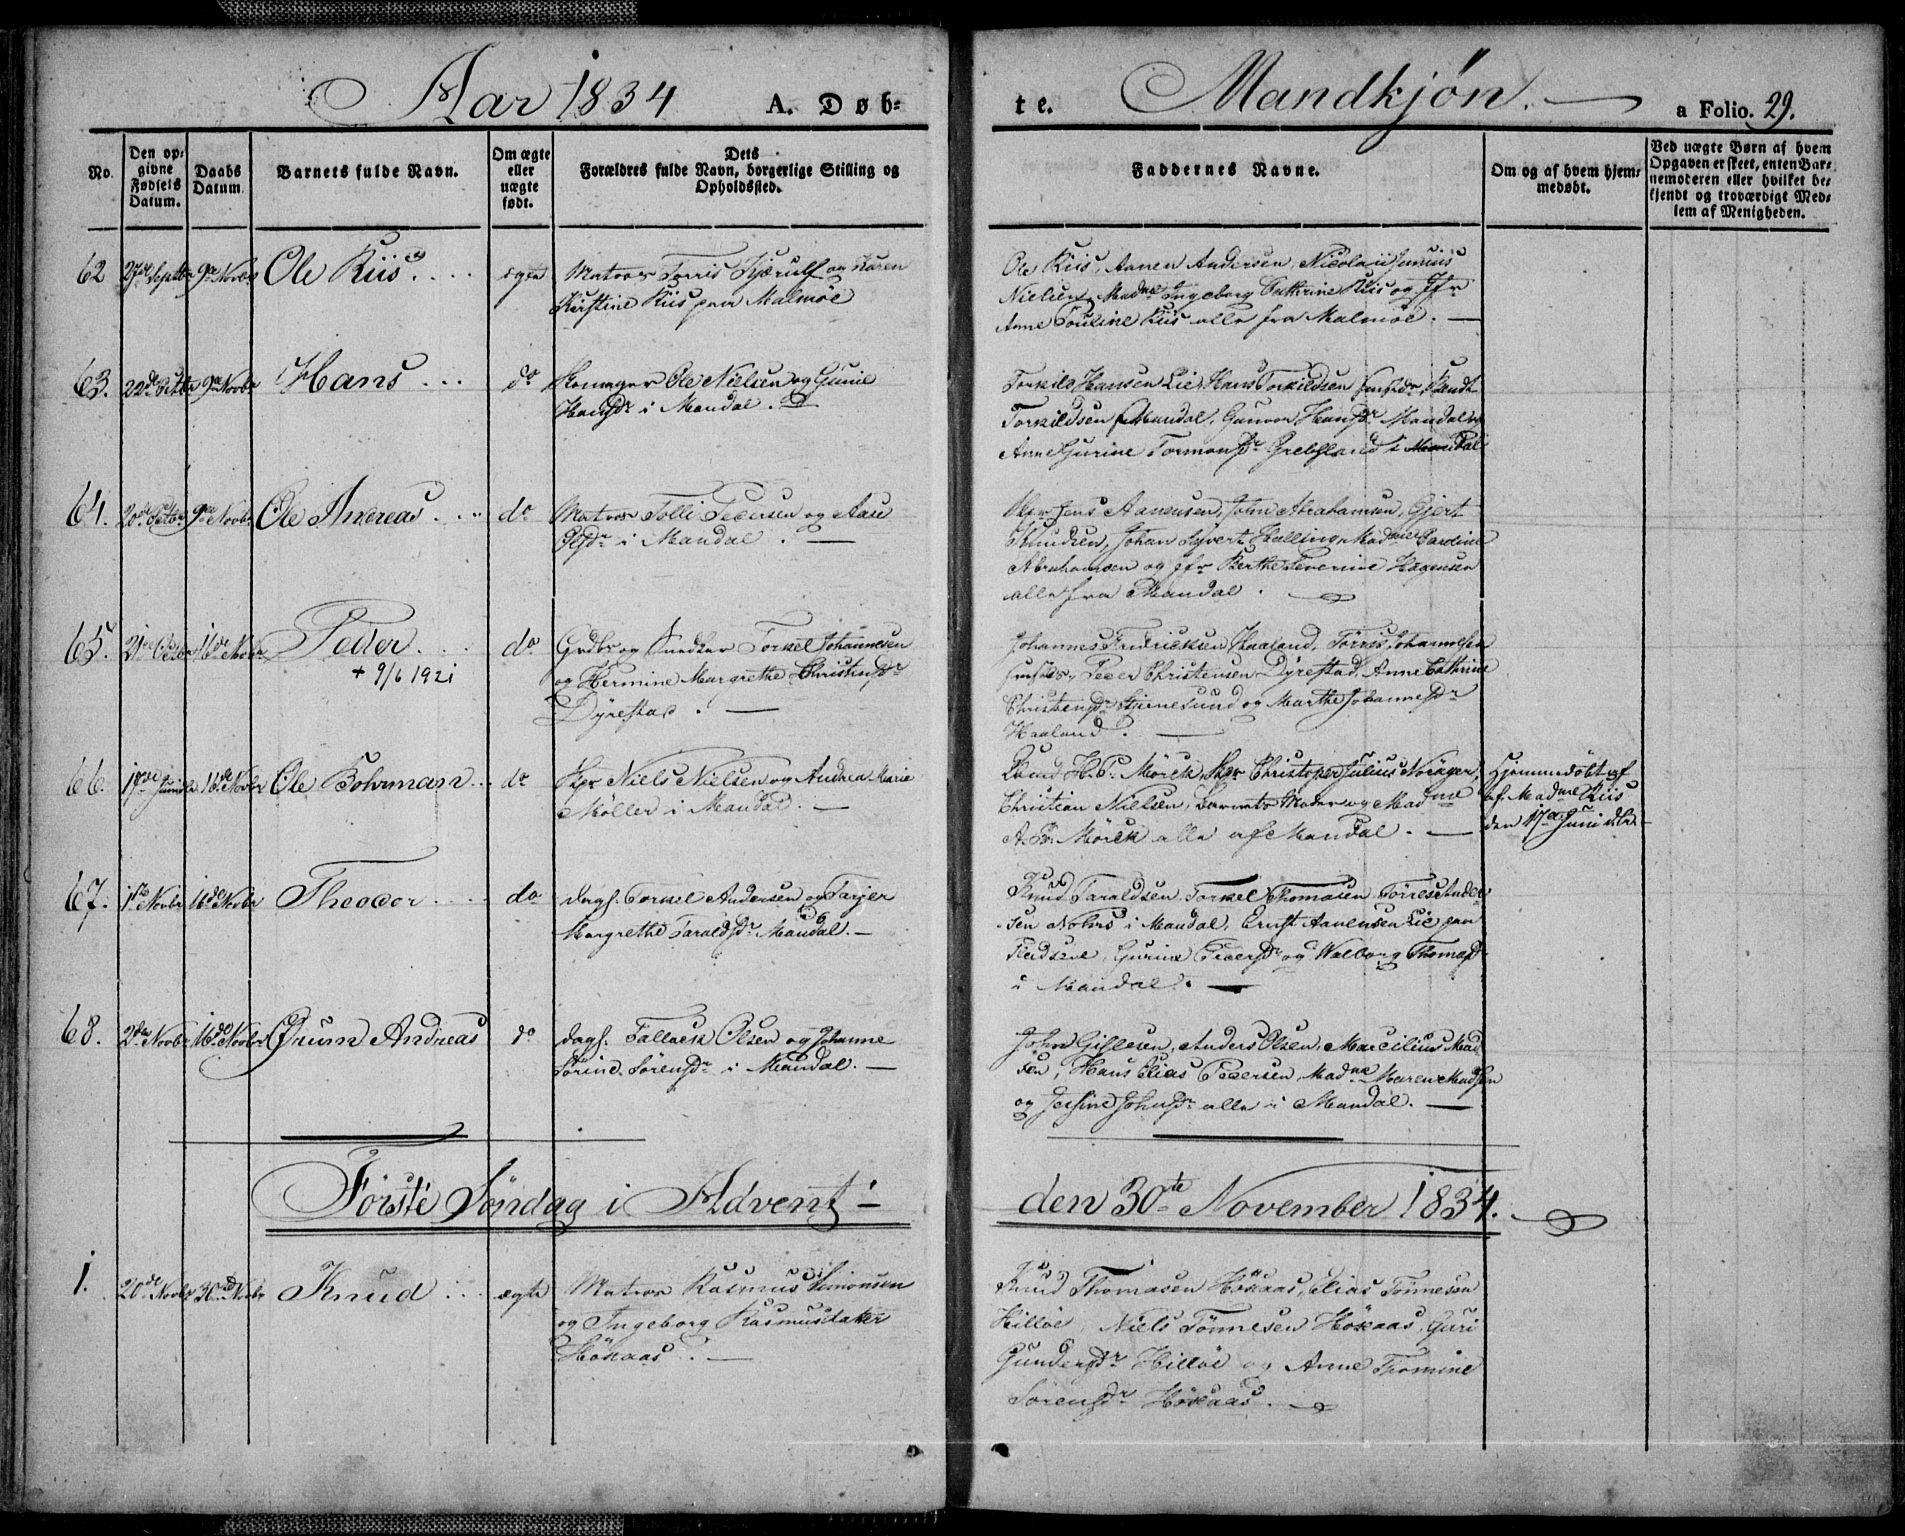 Aar 1834 A. Døb-
te. Mandkjøn. a Folio. 29.
No.
Den op-
givne
Fødsels
Datum.
Daabs
Datum.
Barnets fulde Navn.
Om ægte
eller
uægte
født.
Dets
Forældres fulde Navn, borgerlige Stilling og
Opholdssted.
Faddernes Navne.
Om og af hvem hjem-
medøbt.
Ved uægte Børn af hvem
Opgaven er skeet, enten Bar-
nemoderen eller hvilket be-
kjendt og troværdigt Med-
lem af Menigheden.
62 27de Septbr 9de Novbr Ole Riis. ægte Matros Torris Kjærulf og Karen
Kirstine Riis paa Malmøe
Ole Riis, Aanen Andersen, Nicolai Junius
Nielsen, Madme Ingeborg Cathrine Riis og Jfr
Anne Pouline Riis alle fra Malmøe.
63. 22de Octbr 9de Novbr Hans do Ole Nielsen og Gunil
Hansdr i Mandal.
Torkild Hansen Lie, Hans Torkildsen
Torkildsen Mandal, Gunvor Hansdr Mandal og
Anne Gurine Tormonsdr i Mandal
64. 20de Octbr 9de Novbr Ole Andreas do Matros Tolli Pedersen og Aase
Olsdr i Mandal.
Jens Aanensen, John Abrahamsen, Gjert
Knudsen, Johan Syvert Halling, Madme
Abrahamsen og Jfr Berthe Severine Hagensen
alle fra Mandal.
65. 21de Octbr 16de Novbr Peder do Grdbr og Snedker Torkel Johannesen
+ 9/6 1921
og Hermine Margrethe Christensdr
Dyrestad.
Johannes Fredriksen Haaland, Tørris Johannesen
Peder Christensen Dyrestad, Anne Cathrine
Christensdr Skjernesund og Marthe Johannesdr
Haaland.
66. 17de Juni 16de Novbr Ole Bohrman do Skpr Niels Nielsen og Andrea Marie
Møller i Mandal.
H. P. Mörck, Skpr Christopher Julius
Christian Nielsen, Barnets Moder og Madme
A. B. Mörck alle af Mandal.
Hjemmedøbt af
af Madme Riis
den 17de Juni
67. 1ste Novbr 16de Novbr Theodor do dags. Torkel Andersen og Tarjer
Margrethe Taraldsdr Mandal.
Knud Taraldsen, Torkel Thomasen, Tørres Ander-
sen Holms i Mandal, Ernst Aanensen Lie paa
Gurine Pedersdr og Walborg Thomasdr
i Mandal.
68. 2den Novbr 16de Novbr Ørum Andreas do dags. Tallack Olsen og Johanne
Sørine Sørensdr i Mandal.
John Gislesen, Anders Olsen, Marcilius Mad-
sen, Hans Elias Pedersen, Madme Maren Madsen
og Johnsdr alle i Mandal.
Første Søndag i Advent
den 30te November 1834.
1. 20de Novbr 30te Novbr Knud ægte Matros Rasmus Simonsen
og Ingeborg Rasmusdatter
Höxaas.
Knud Thomasen Höxaas, Elias Tönnesen
Hilløe, Niels Tönnesen Höxaas, Guri
Gundersdr Hilløe og Anne Tromine
Sørensdr Höxaas.